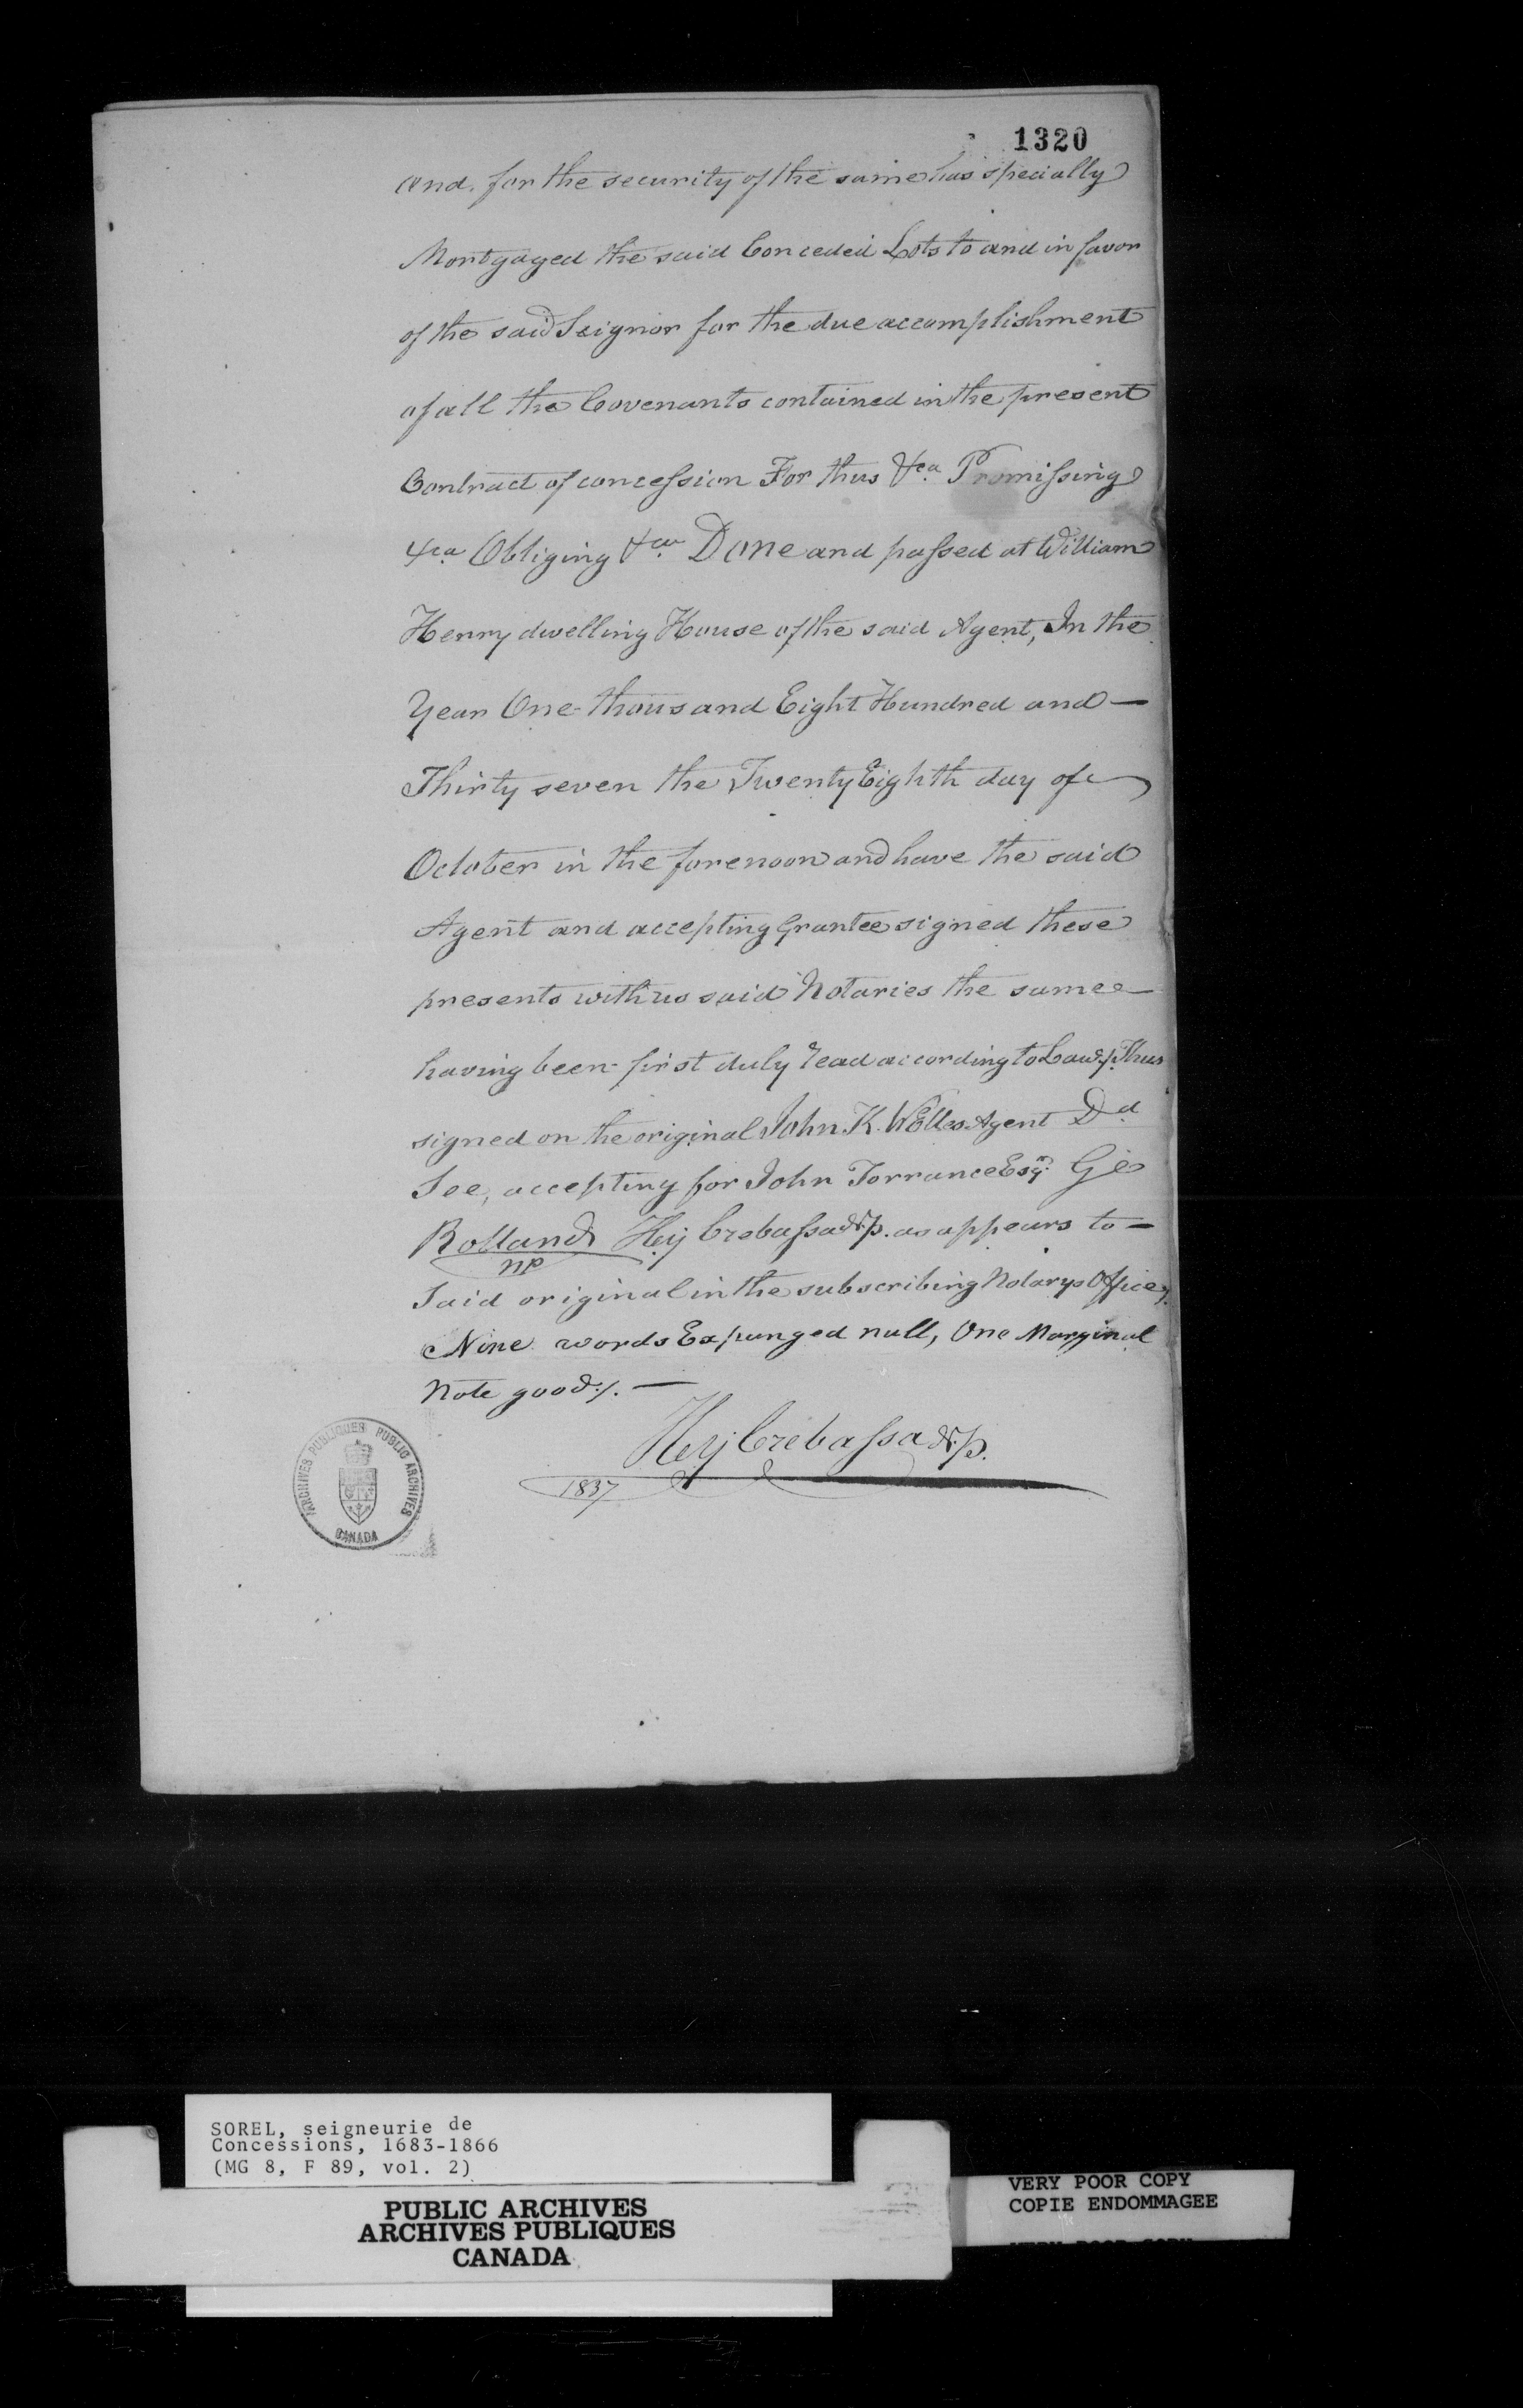 1320
and. for the security of the same has specially
Mortgaged the said Conceded Lots to and in favor
of the said Seignor for the due accomplishment
of all the Covenants contained in the present
Contract of concession For thus &ca. Promissing
&ca Obliging &ca. Done and passed at William
Henry dwelling House of the said Agent, In the
Year One thousand Eight Hundred and —
Thirty seven the Twenty Eighth day of
October in the forenoon and have the said
Agent and accepting Grantee signed these
presents with us said Notaries the same —
having been first duly read according to Law ./. Thus
signed on the original John. K. Welles Agent Dd
See, accepting for John Torrance Esqr. Ge
Rolland Hy Crebassa N.p. as appears to —
NP
Said original in the subscribing Notarys Office ./.
Nine words Expunged null, One Marginal
Note good ./. —
Hy Crebassa N.p.
1837
ARCHIVES PUBLIQUES PUBLIC ARCHIVES
CANADA
SOREL, seigneurie de
Concessions, 1683-1866
(MG 8, F 89, vol. 2)
PUBLIC ARCHIVES
ARCHIVES PUBLIQUES
CANADA
VERY POOR COPY
COPIE ENDOMMAGEE
VERY POOR COPY